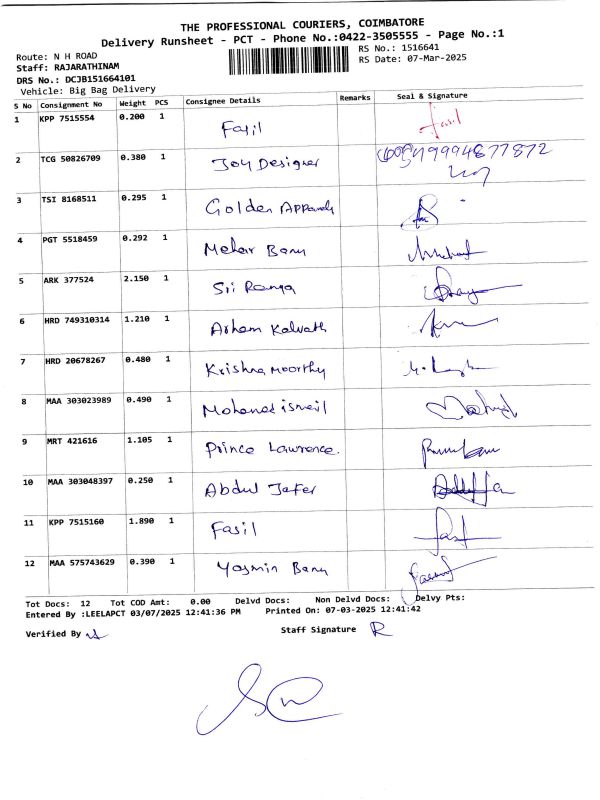 THE PROFESSIONAL COURIERS, COIMBATORE
Delivery Runsheet - PCT - Phone No.:0422-3505555 - Page No.:1
Route: N H ROAD
RS No.: 1516641
Staff: RAJARATHINAM
RS Date: 07-Mar-2025
DRS No.: DCJB151664101
Vehicle: Big Bag Delivery
S No Consignment No Weight PCS Consignee Details Remarks Seal & Signature
1 KPP 7515554 0.200 1 Fasil Fasil
2 TCG 50826709 0.380 1 Joy Designer 9994877872
3 TSI 8168511 0.295 1 Golden Apparels
4 PGT 5518459 0.292 1 Mehar Banu
5 ARK 377524 2.150 1 Sri Ranga
6 HRD 749310314 1.210 1 Arham Kalvath
7 HRD 20678267 0.480 1 Krishna Moorthy
8 MAA 303023989 0.490 1 Mohamed ismail
9 MRT 421616 1.105 1 Prince Lawrence.
10 MAA 303048397 0.250 1 Abdul Jafer
11 KPP 7515160 1.890 1 Fasil
12 MAA 575743629 0.390 1 Yasmin Banu
Tot Docs: 12 Tot COD Amt: 0.00 Delvd Docs: Non Delvd Docs: Delvy Pts:
Entered By :LEELAPCT 03/07/2025 12:41:36 PM Printed On: 07-03-2025 12:41:42
Verified By
Staff Signature R